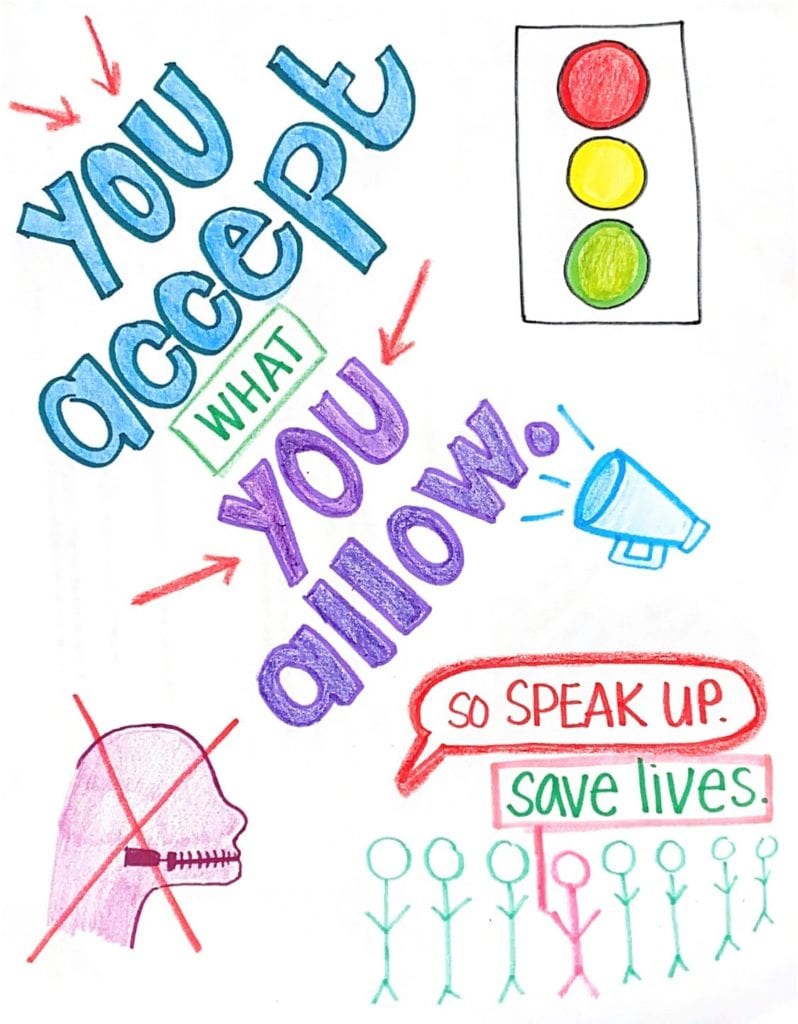 YOU
accept
WHAT
YOU
allow.
SO SPEAK UP.
save lives.